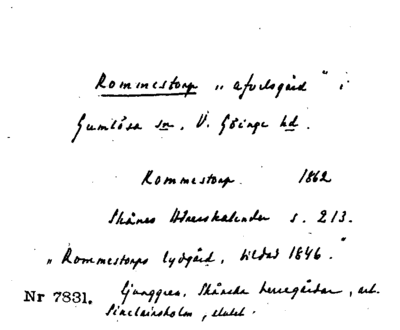 Rommestorp „afvelsgård" i
Gumlösa sn, V. Göinge hd.
Rommestorp. 1862
Skånes Adresskalender s. 213.
„Rommestorps lydgård, bildad 1846."
Ljunggren, Skånska herregårdar, art.
Nr 7831.
Sinclairsholm, slutet.